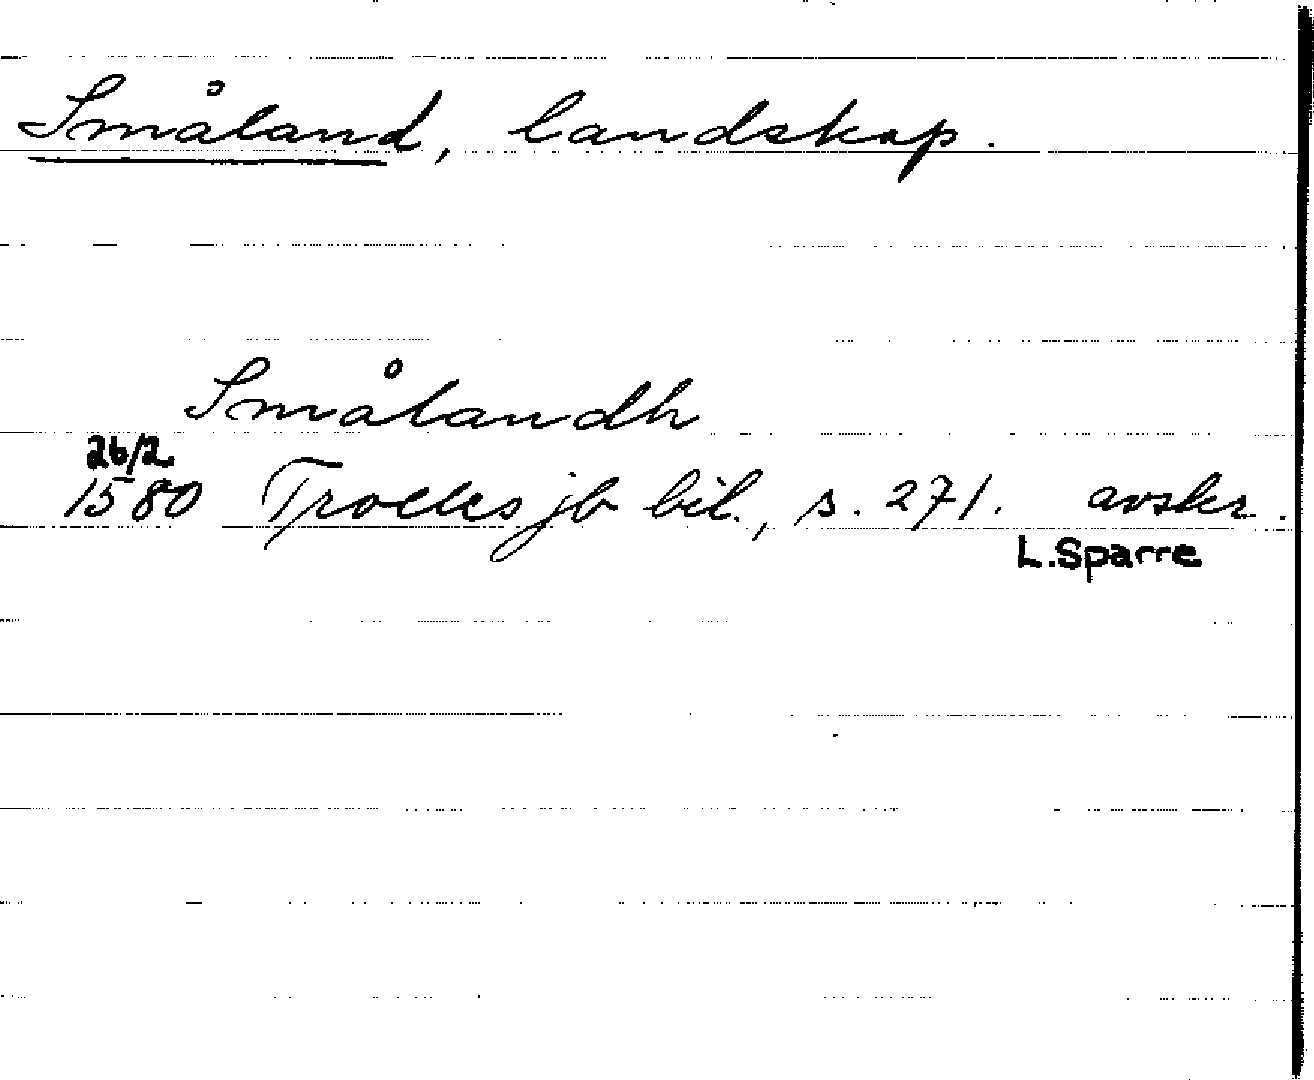 Småland, landskap.
Smålandh
26/2
1580 Trolles jb bil., s. 271. avskr.
L.Sparre